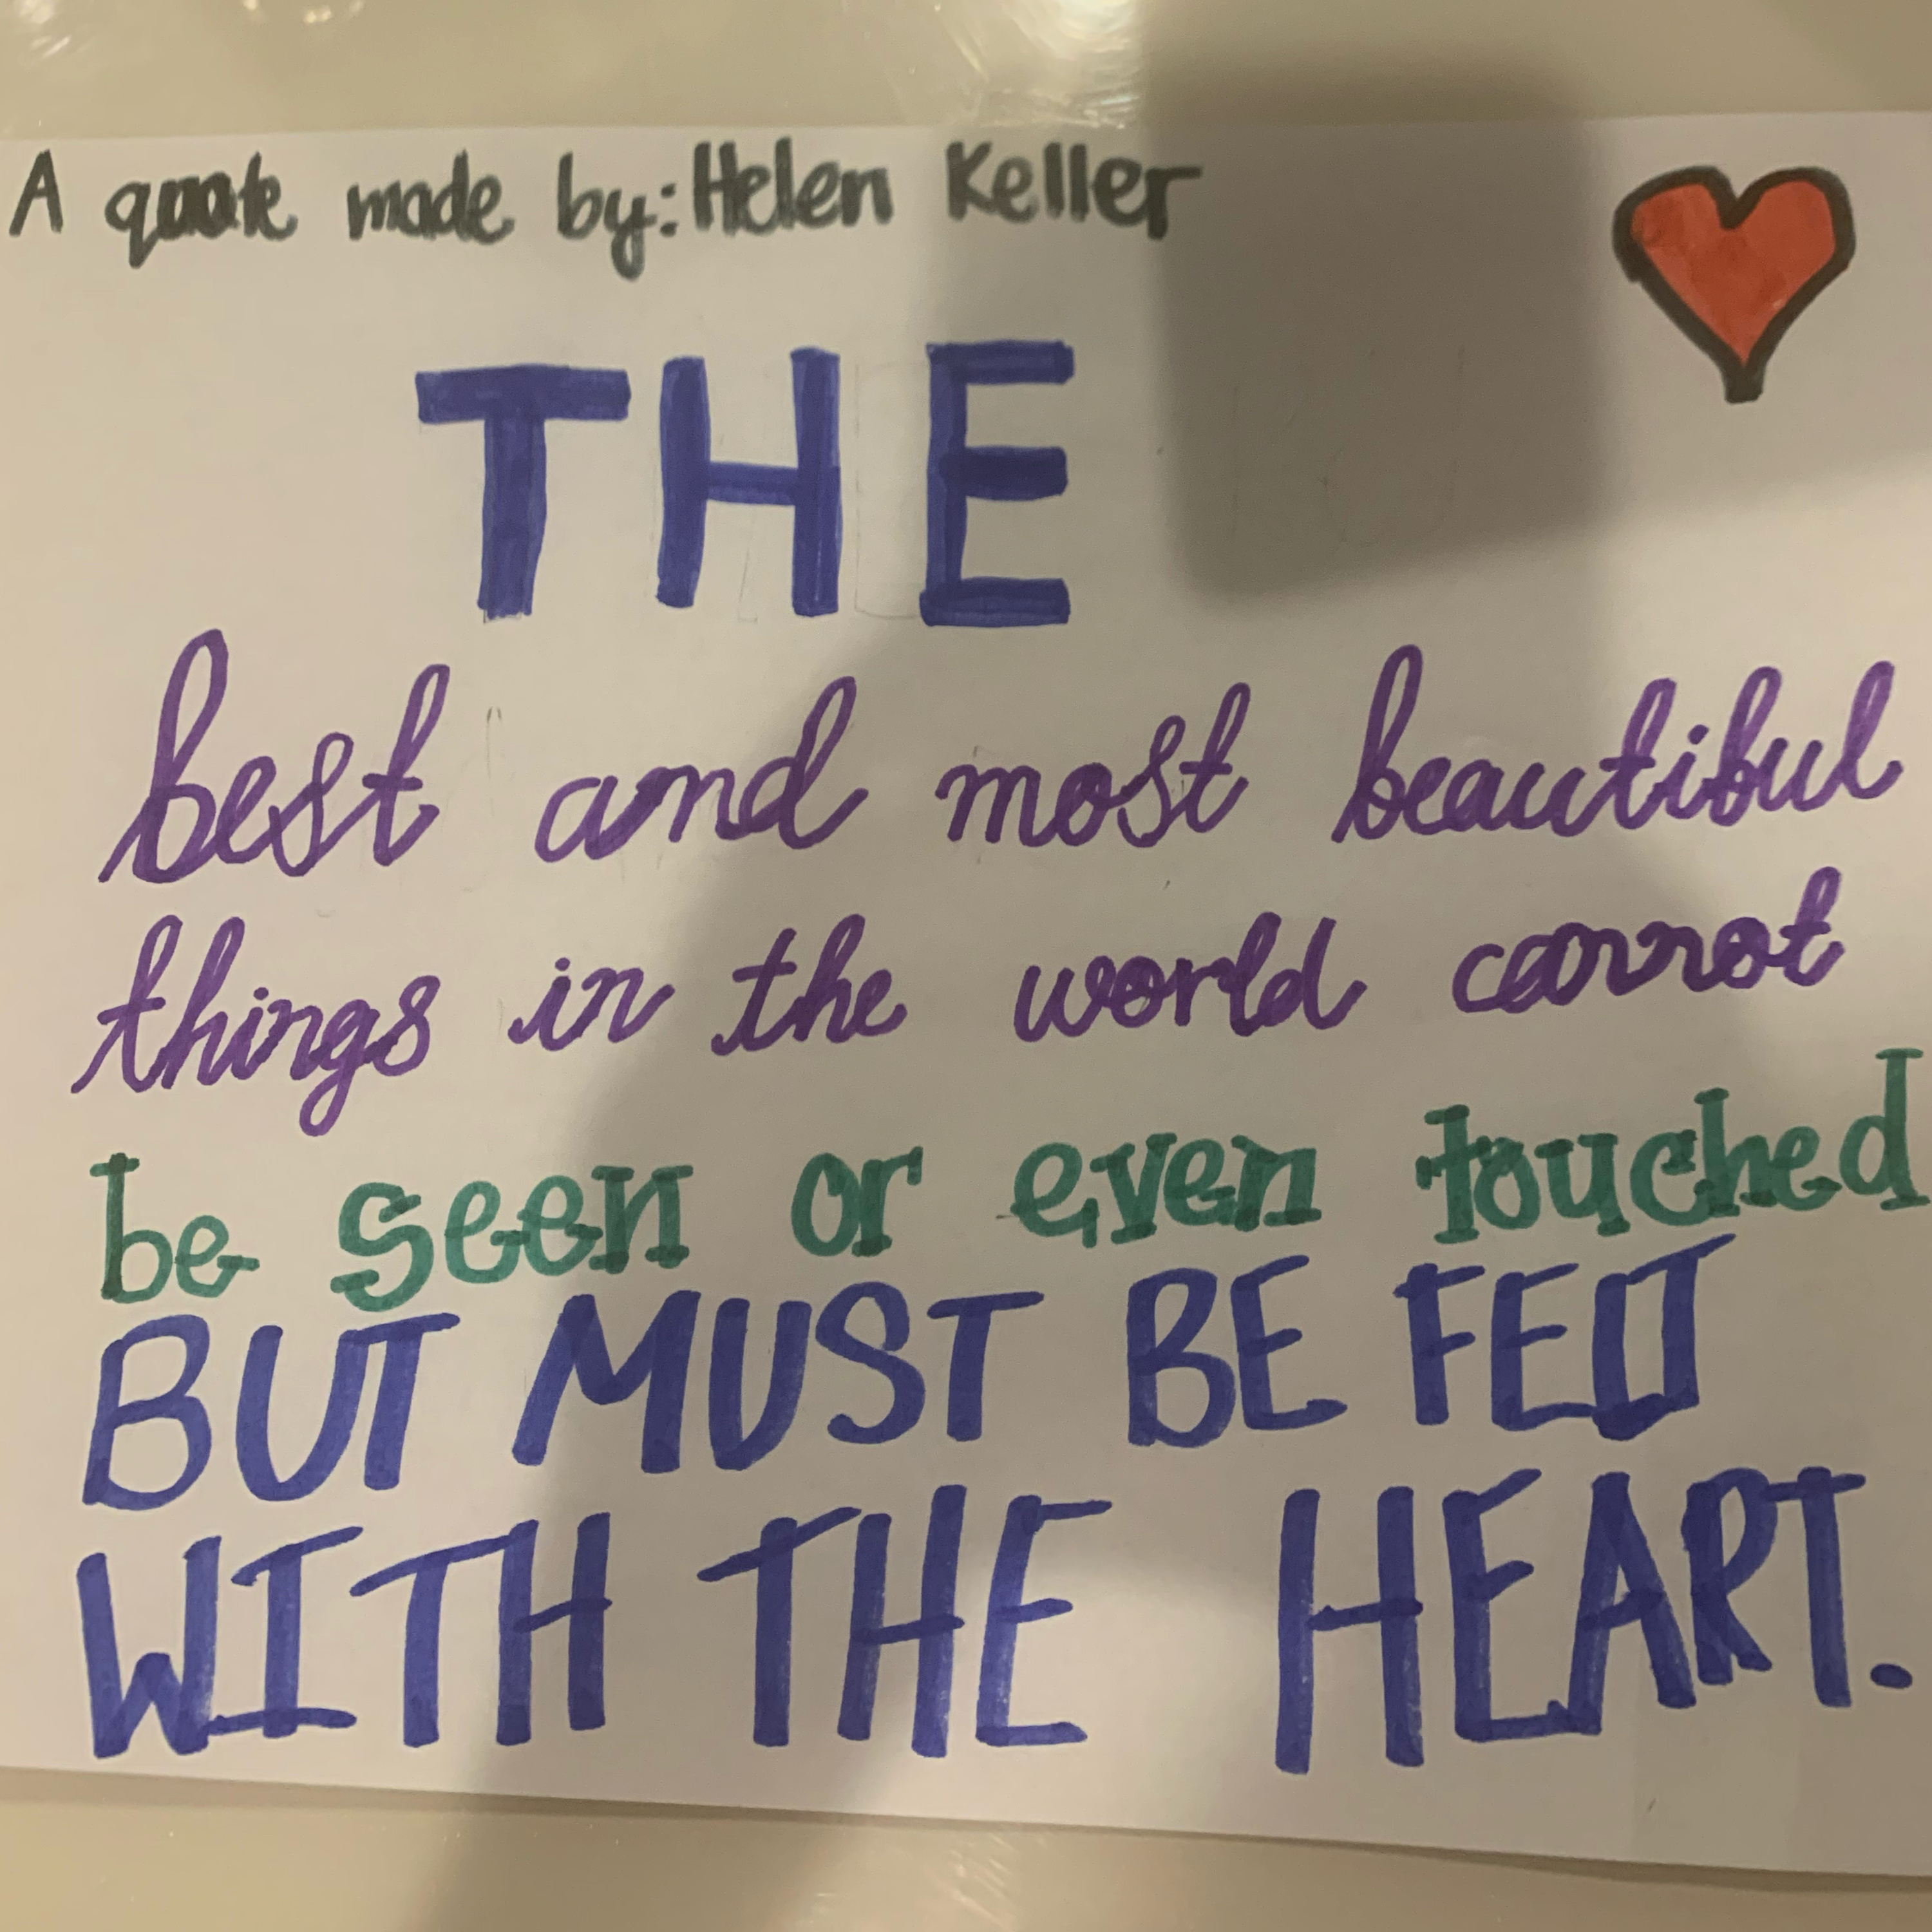 A quote made by: Helen Keller
THE
best and most beautiful
things in the world cannot
be seen or even touched
BUT MUST BE FELT
WITH THE HEART.